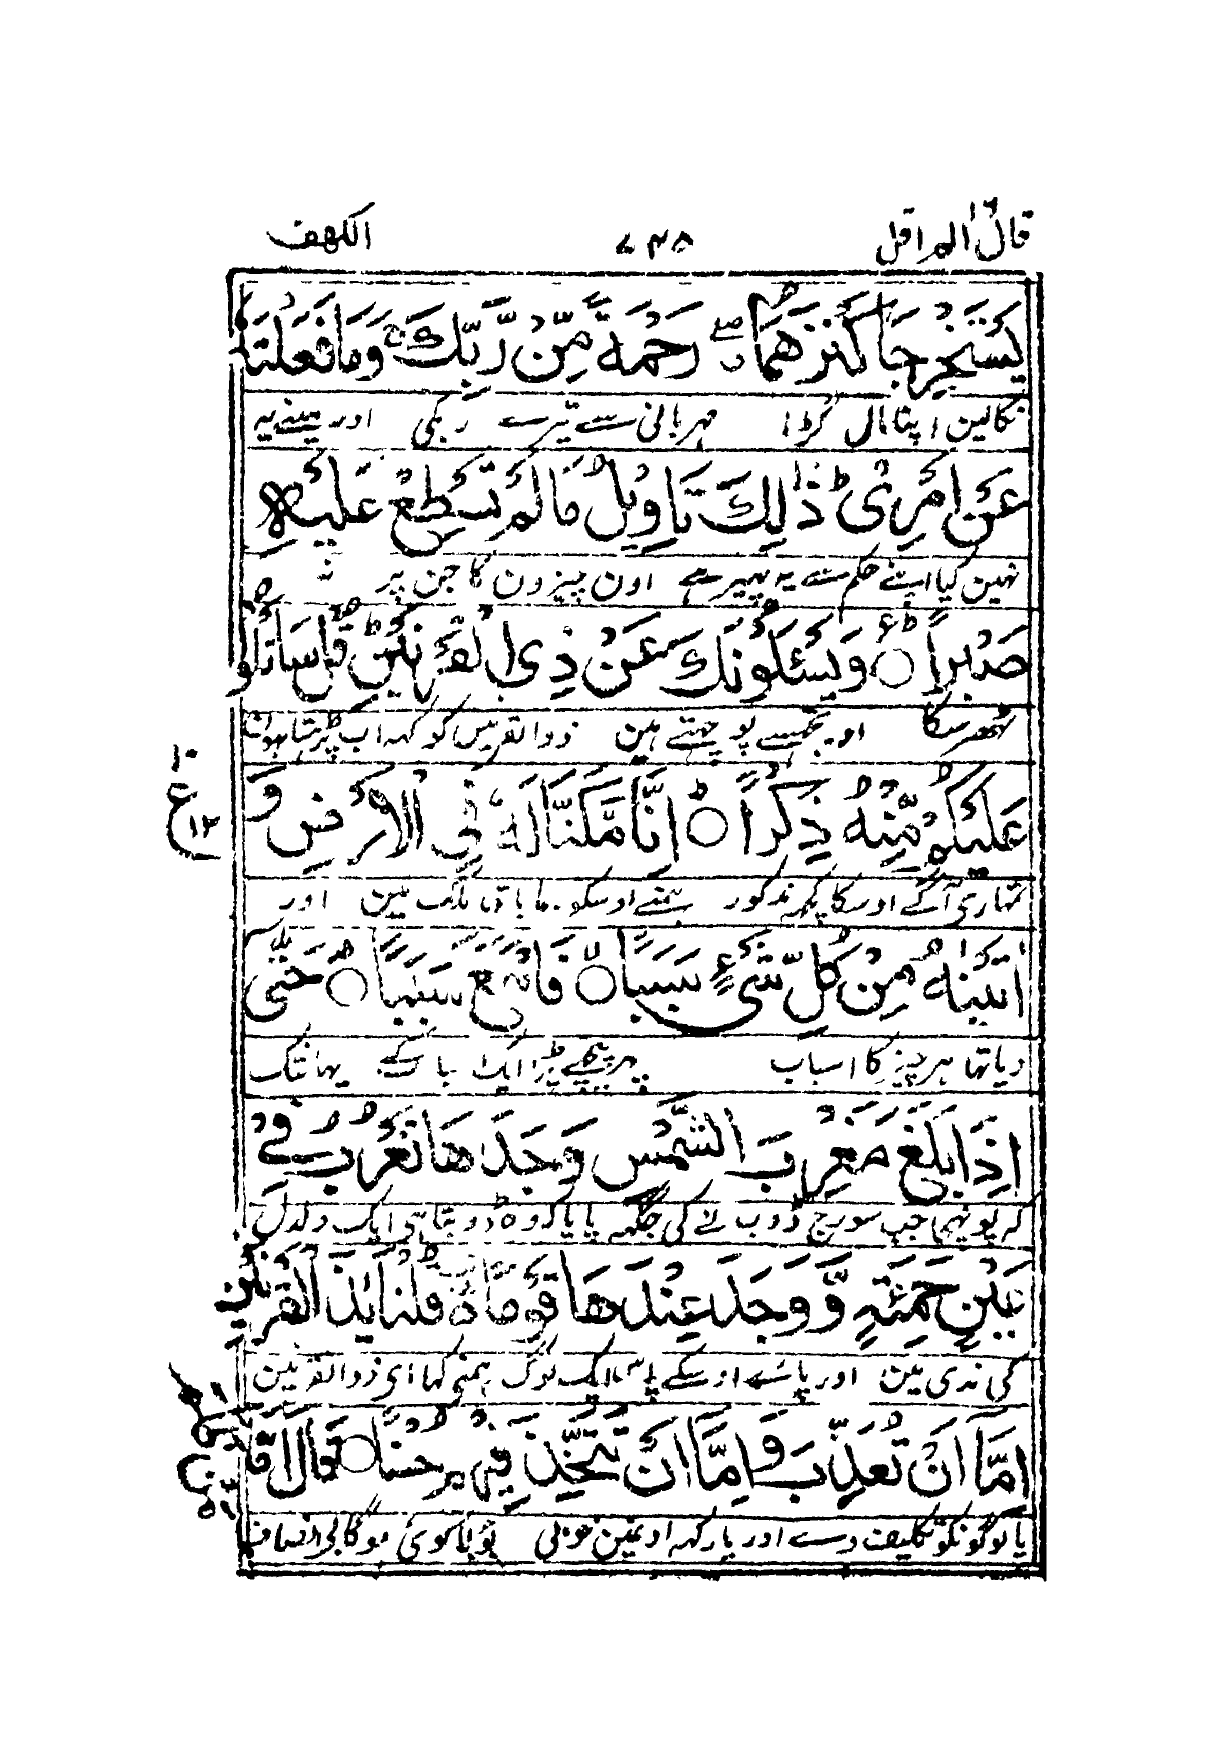 قال الم اقل ۷۴۵ الكهف
يَسْتَخْرِجَا كَنْزَهُمَا رَحْمَةً مِّنْ رَّبِّكَ ۚ وَمَا فَعَلْتُهٗ
نکالین اپنا مال گڑا مہربانی سے تیرے رب کی اور مینے یہ
عَنْ اَمْرِىْ ؕ ذٰلِكَ تَاْوِيْلُ مَا لَمْ تَسْطِعْ عَّلَيْهِ
نہین کیا اپنے حکم سے یہ پہیر ہے اون چیزون کا جن پر نہ
صَبْرًا ۞ وَيَسْـَٔلُوْنَكَ عَنْ ذِى الْقَرْنَيْنِ ؕ قُلْ سَاَتْلُوْا
ٹھہر سکا اور تجھسے پوچہتے ہین ذوالقرنین کو کہہ اب پڑہتا ہون
عَلَيْكُمْ مِّنْهُ ذِكْرًا ۞ اِنَّا مَكَّنَّا لَهٗ فِى الْاَرْضِ وَ
۱۰
ع
۱۲
تمہاری آگے اوسکا کچہہ مذکور ہمنے اوسکو جمایا تہا ملک مین اور
اٰتَيْنٰهُ مِنْ كُلِّ شَىْءٍ سَبَبًا ۞ فَاَتْبَعَ سَبَبًا ۞ حَتّٰى
دیا تہا ہر چیز کا اسباب پہر پیچہے پڑا ایک اسباب کے یہانتک
اِذَا بَلَغَ مَغْرِبَ الشَّمْسِ وَجَدَهَا تَغْرُبُ فِىْ
کہ پونہچا جب سورج ڈوبنے کی جگہہ پایا کہ وہ ڈوبتا ہی ایک دلدل
عَيْنٍ حَمِئَةٍ وَّوَجَدَ عِنْدَهَا قَوْمًا ۬ؕ قُلْنَا يٰذَا الْقَرْنَيْنِ
کی ندی مین اور پائے اوسکے پاس ایک لوگ ہمنے کہا ای ذوالقرنین
اِمَّآ اَنْ تُعَذِّبَ وَاِمَّآ اَنْ تَتَّخِذَ فِيْهِمْ حُسْنًا ۞ قَالَ اَمَّا
یا لوگونکو تکلیف دے اور یا رکہہ اونمین خوبی بولا جو کوئی ہوگا بی انصاف